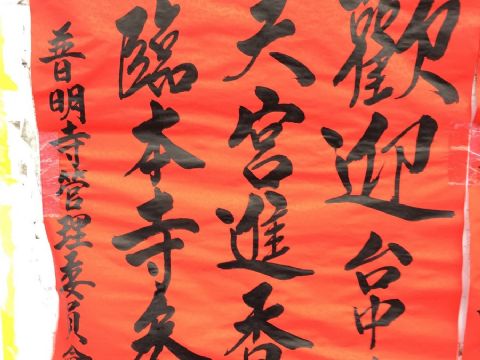 歡迎台中
天宮進香
臨本寺參
普明寺管理委員會